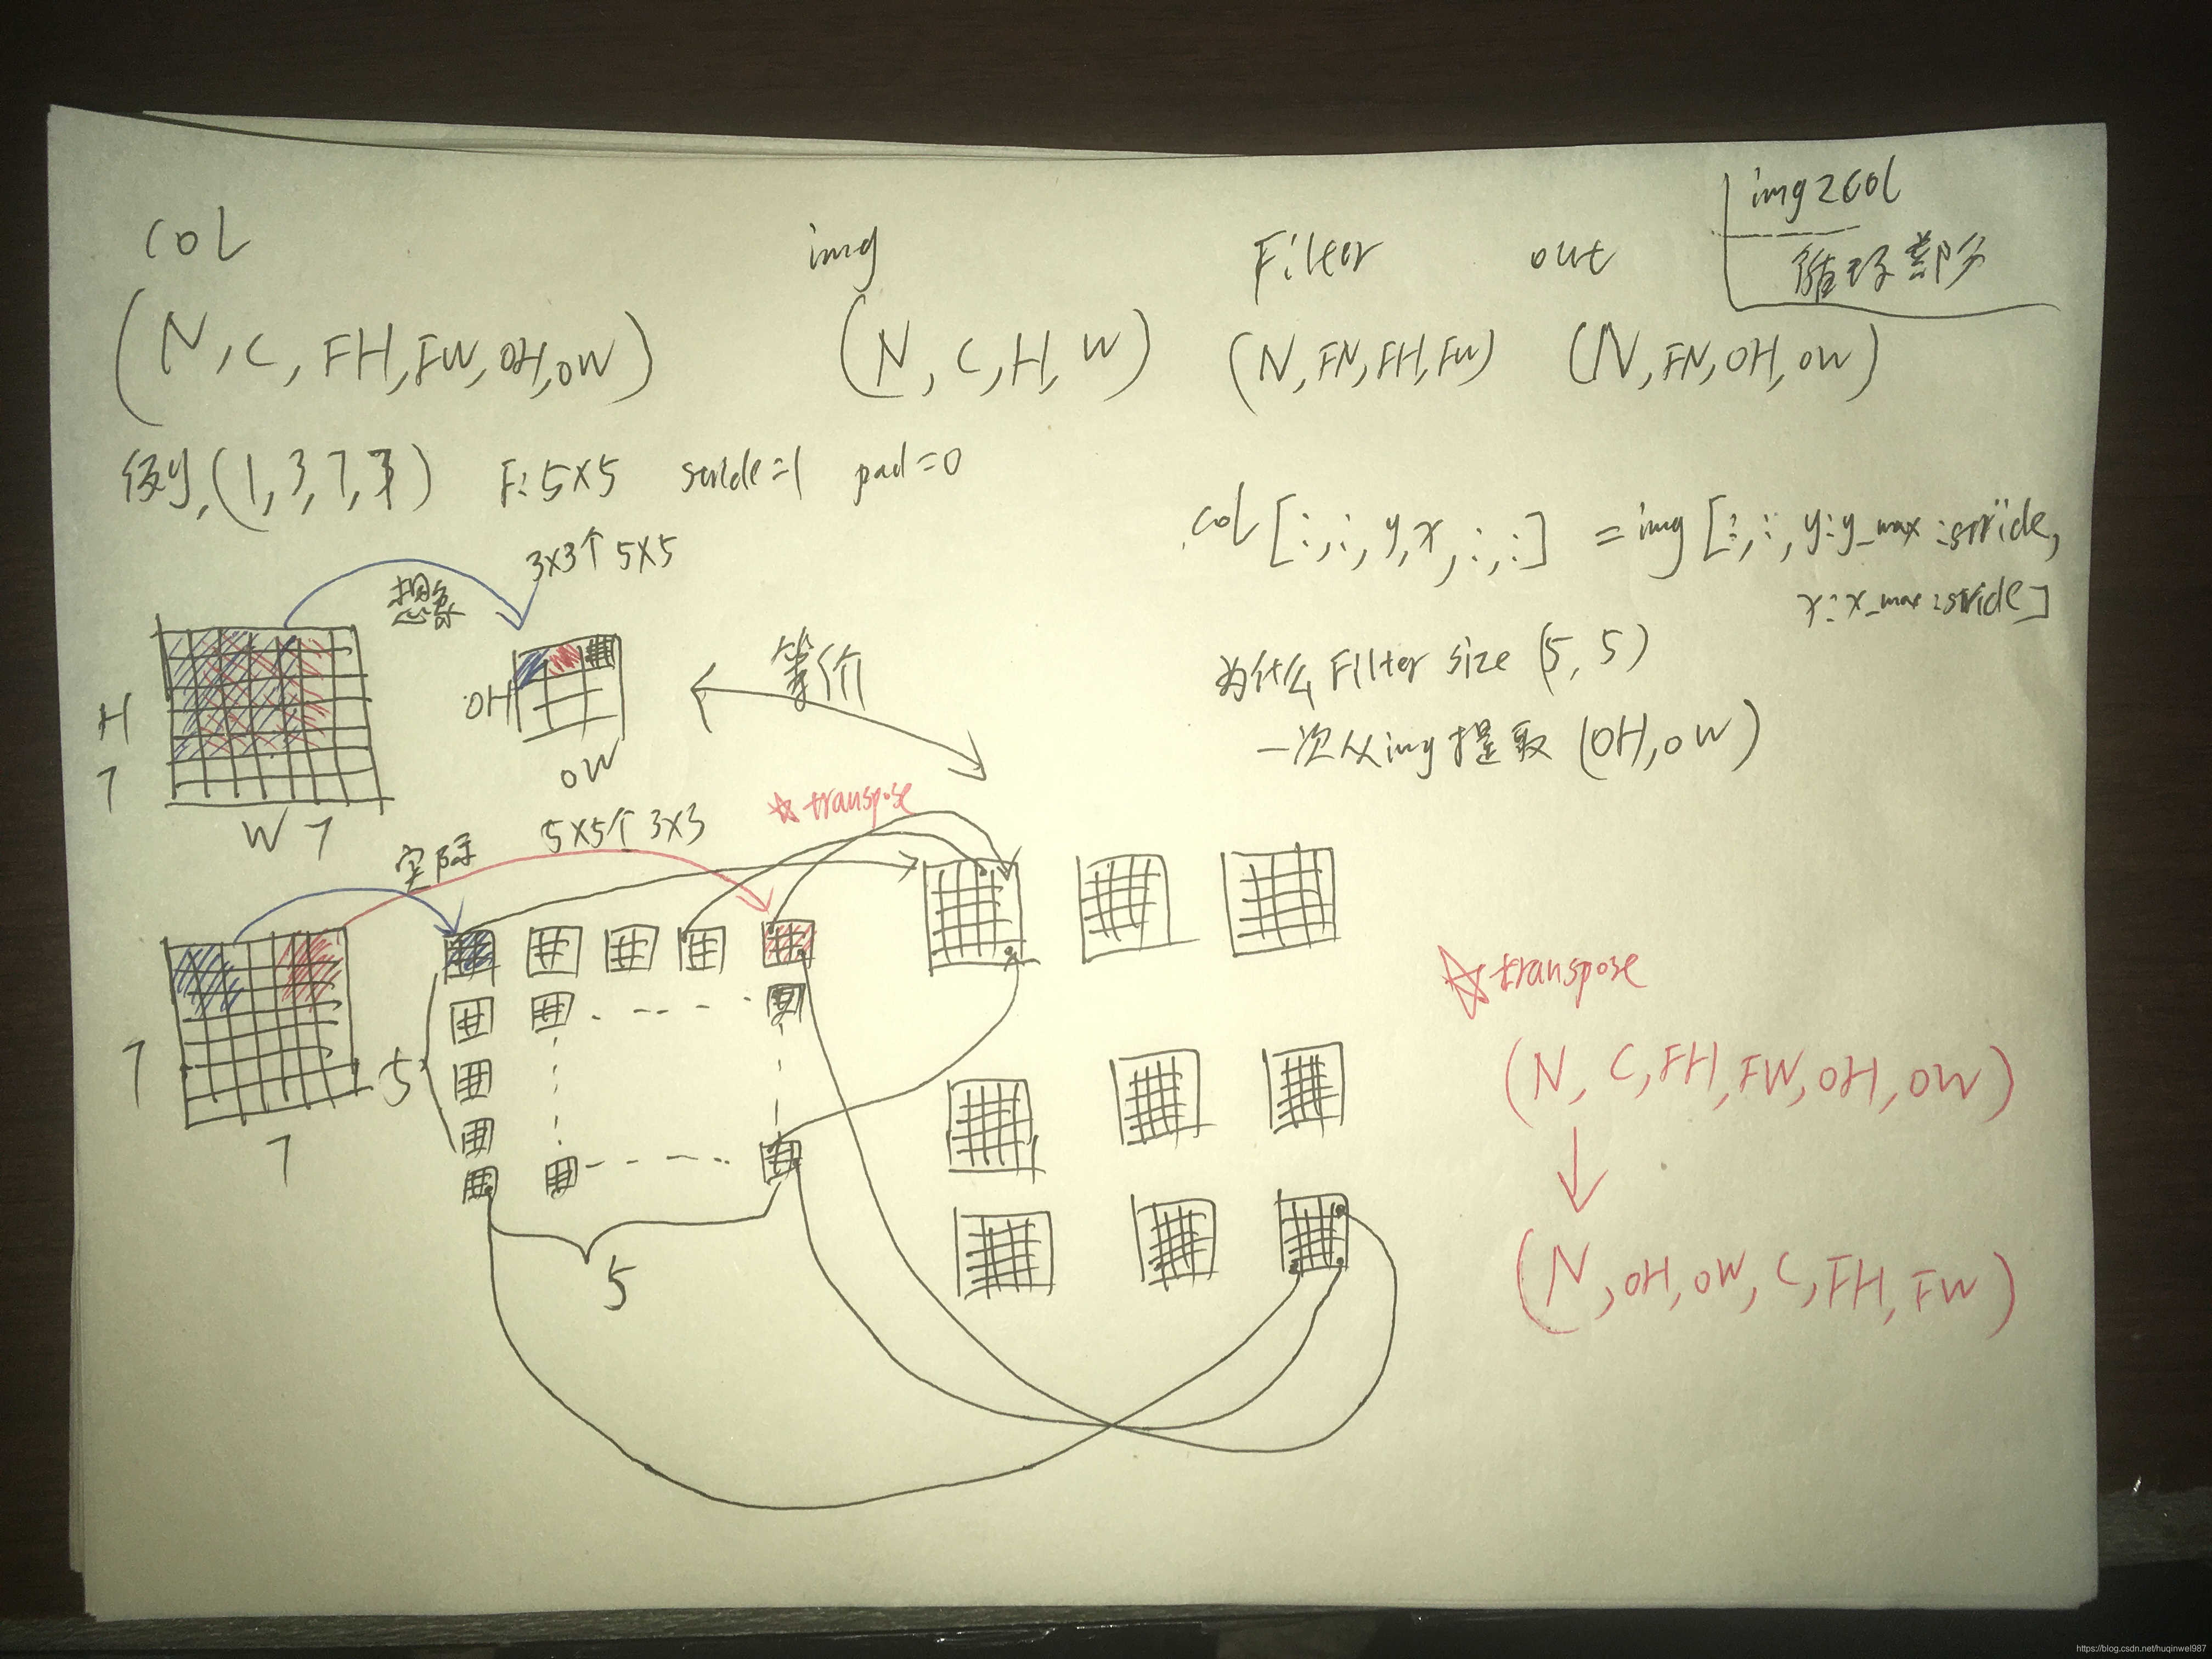 img2col
循环部分
col
img
Filter
out
(N, C, FH, FW, OH, OW)
(N, C, H, W)
(N, FN, FH, FW)
(N, FN, OH, OW)
假如, (1, 3, 7, 7) F: 5×5 stride=1 pad=0
col [:, :, y, x, :, :] = img [:, :, y:y_max:stride,
x:x_max:stride]
为什么 Filter size (5, 5)
一次从img提取 (OH, OW)
想象
3×3个 5×5
H
7
W 7
OH
OW
等价
实际
5×5个 3×3
☆transpose
7
7
5
5
☆transpose
(N, C, FH, FW, OH, OW)
↓
(N, OH, OW, C, FH, FW)
https://blog.csdn.net/huqinwei987